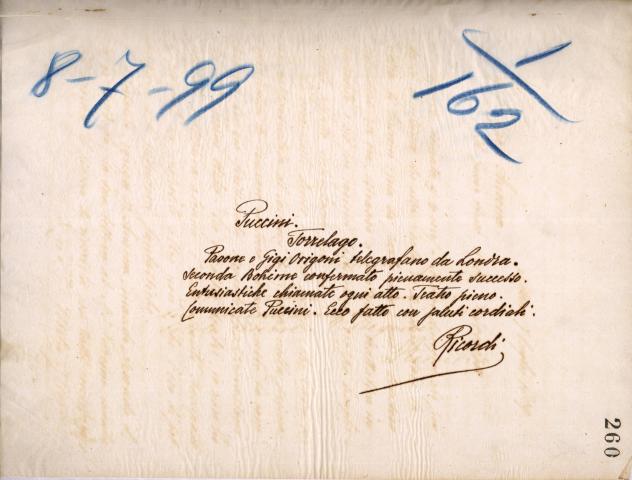 8-7-99
1/162
Puccini.
Torrelago.
Pavone e Gigi Origoni telegrafano da Londra.
Seconda Bohème confermato pienamente successo.
Entusiastiche chiamate ogni atto. Teatro pieno.
Comunicate Puccini. Ecco fatto con saluti cordiali.
Ricordi
260